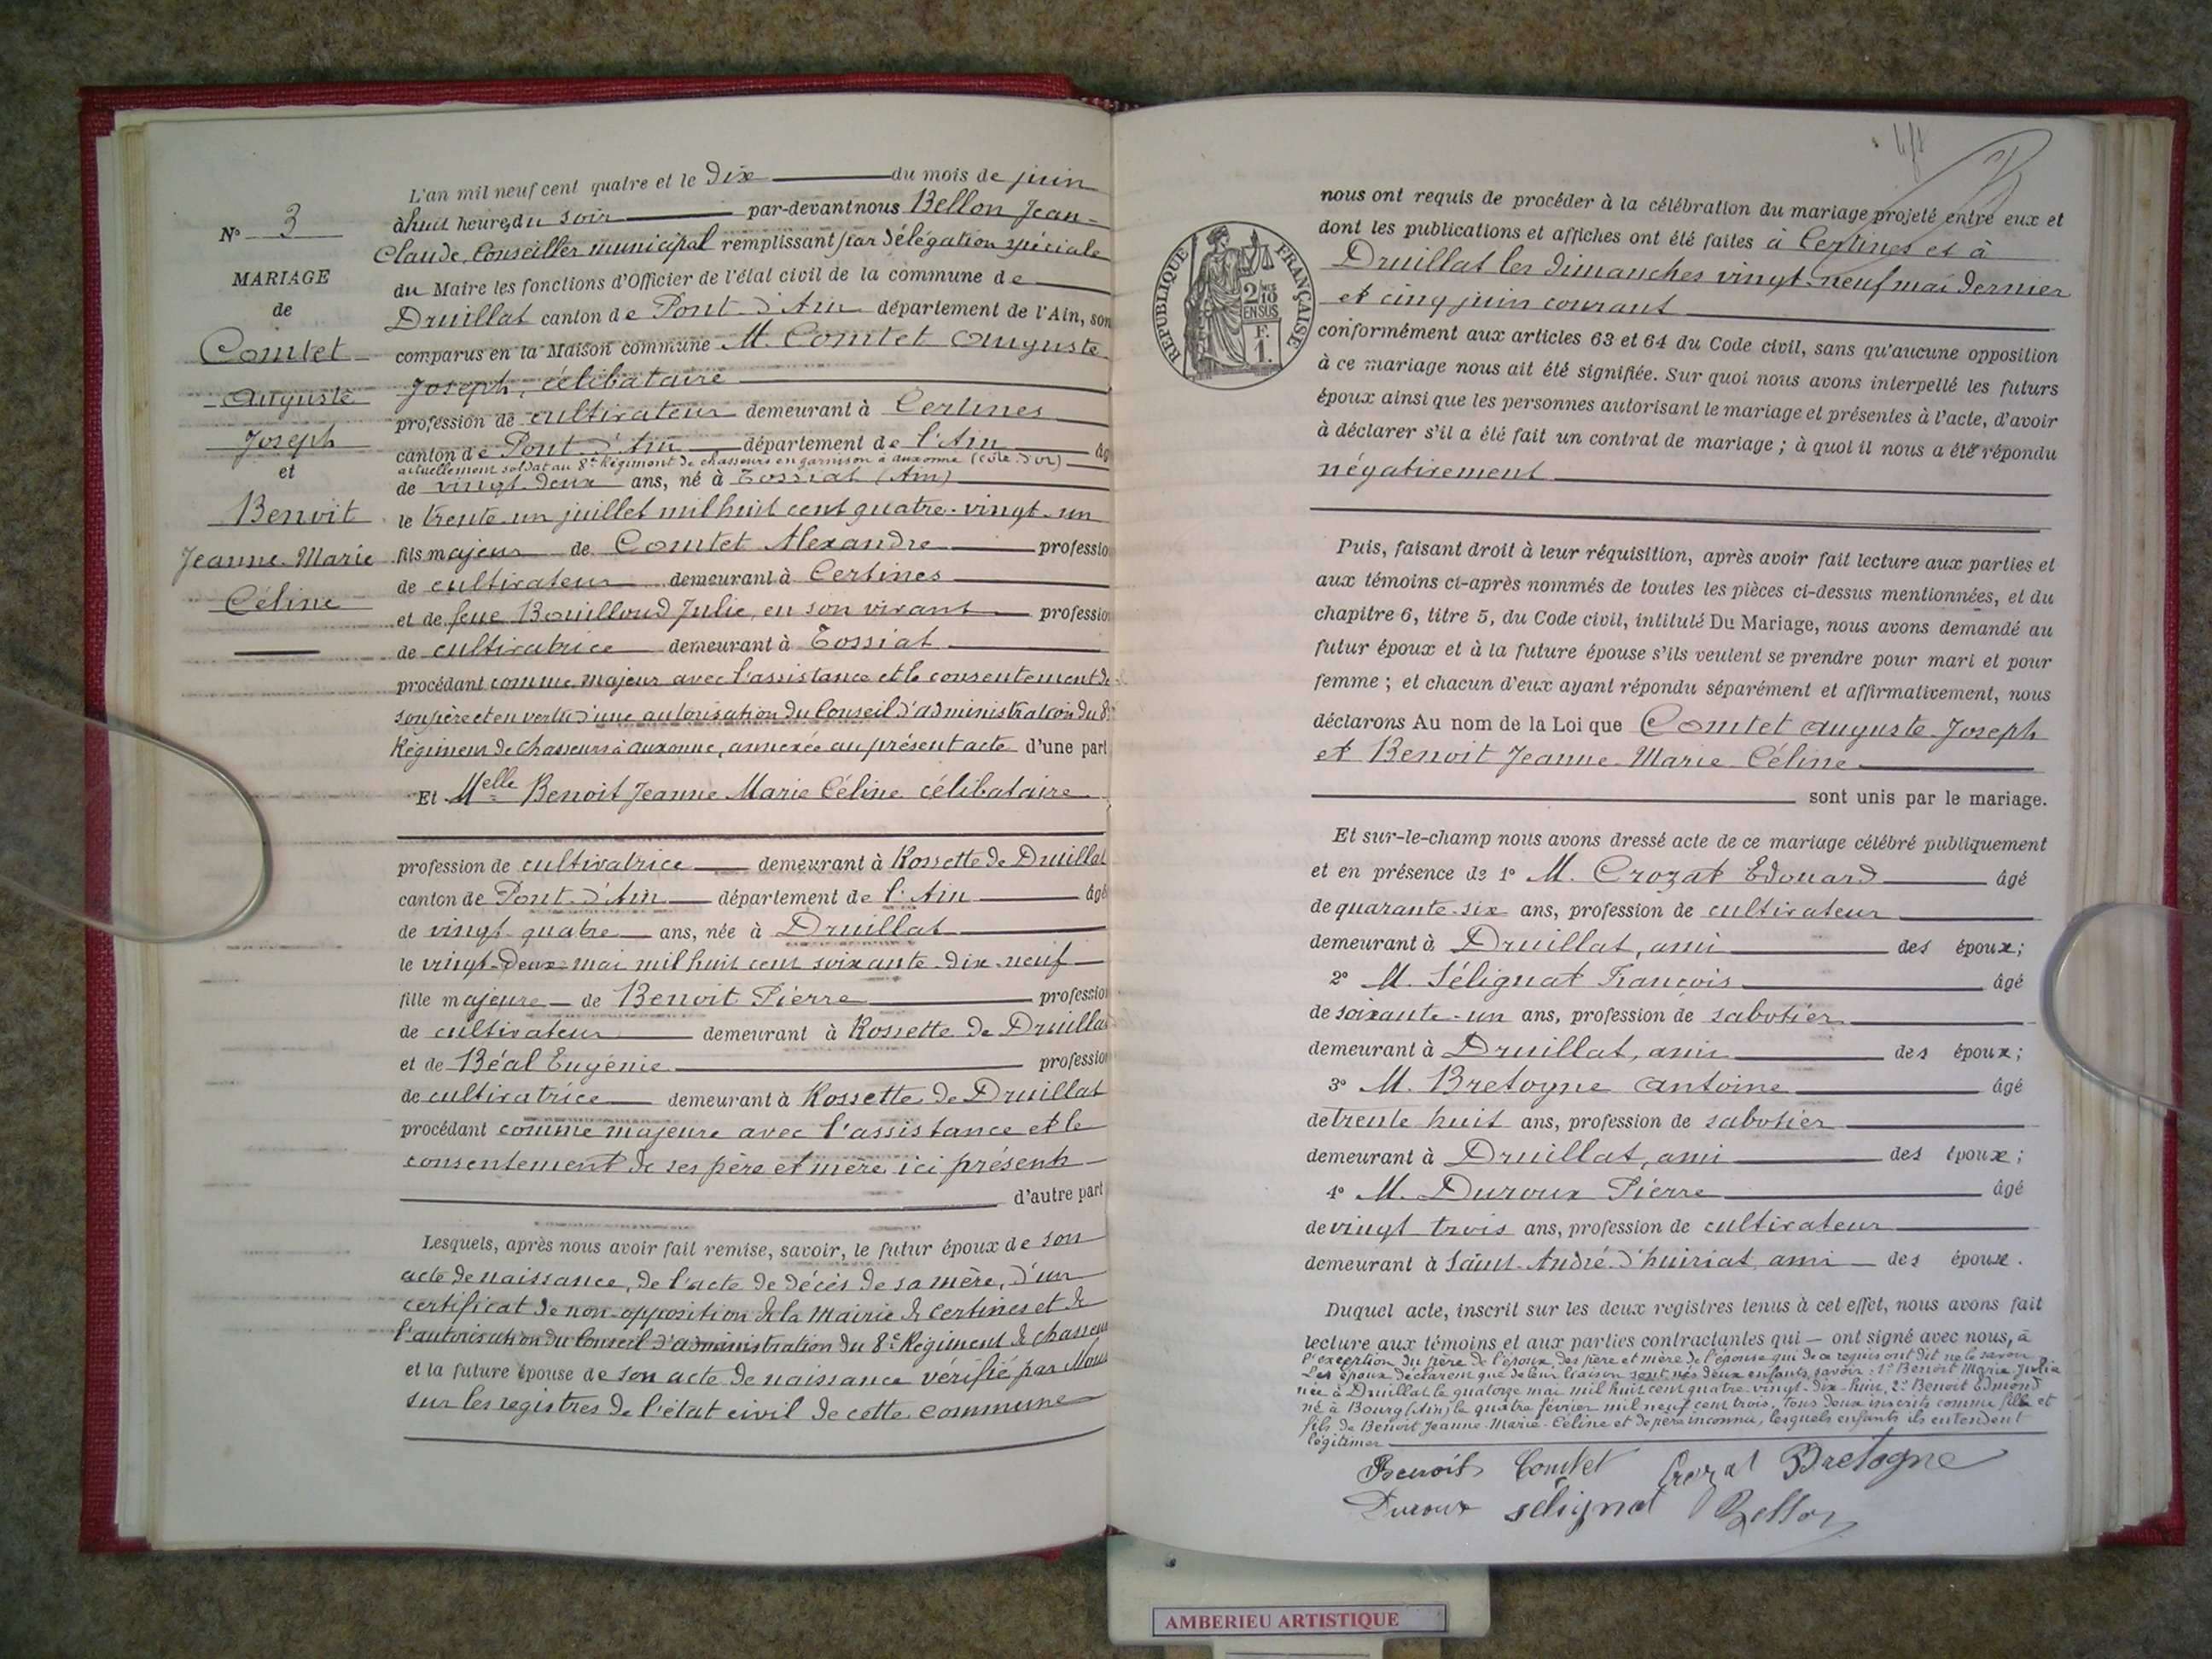 N° 3
MARIAGE
de
Comtet
Auguste
Joseph
et
Benoit
Jeanne-Marie
Céline
L'an mil neuf cent quatre et le dix du mois de juin
à huit heures du soir par-devant nous Bellon Jean-
Claude, Conseiller municipal remplissant par délégation spéciale
du Maire les fonctions d'Officier de l'état civil de la commune de
Druillat canton de Pont-d'Ain département de l'Ain, son
comparus en la Maison commune M. Comtet Auguste
Joseph, célibataire
profession de cultivateur demeurant à Certines
canton de Pont-d'Ain département de l'Ain âg
actuellement soldat au 8e Régiment de chasseurs en garnison à Auxonne (Côte-d'or)
de vingt-deux ans, né à Tossiat (Ain)
le trente-un juillet mil huit cent quatre-vingt-un
fils majeur de Comtet Alexandre professio
de cultivateur demeurant à Certines
et de feue Bouilloud Julie, en son vivant profession
de cultivatrice demeurant à Tossiat
procédant comme majeur avec l'assistance et le consentement de
son père et en vertu d'une autorisation du Conseil d'administration du 8e
Régiment de chasseurs à Auxonne, annexée au présent acte d'une part
Et Melle Benoit Jeanne Marie Céline célibataire
profession de cultivatrice demeurant à Rossette de Druillat
canton de Pont-d'Ain département de l'Ain âgé
de vingt-quatre ans, née à Druillat
le vingt-deux mai mil huit cent soixante-dix-neuf
fille majeure de Benoit Pierre profession
de cultivateur demeurant à Rossette de Druillat
et de Béal Eugénie profession
de cultivatrice demeurant à Rossette de Druillat
procédant comme majeure avec l'assistance et le
consentement de ses père et mère ici présents
d'autre part
Lesquels, après nous avoir fait remise, savoir, le futur époux de son
acte de naissance, de l'acte de décès de sa mère, d'un
certificat de non-opposition de la Mairie de Certines et de
l'autorisation du Conseil d'administration du 8e Régiment de chasseurs
et la future épouse de son acte de naissance vérifié par Nous
sur les registres de l'état civil de cette commune
RÉPUBLIQUE FRANÇAISE
2/10
EN SUS
F.
1.
nous ont requis de procéder à la célébration du mariage projeté entre eux et
dont les publications et affiches ont été faites à Certines et à
Druillat les dimanches vingt-neuf mai dernier
et cinq juin courant
conformément aux articles 63 et 64 du Code civil, sans qu'aucune opposition
à ce mariage nous ait été signifiée. Sur quoi nous avons interpellé les futurs
époux ainsi que les personnes autorisant le mariage et présentes à l'acte, d'avoir
à déclarer s'il a été fait un contrat de mariage ; à quoi il nous a été répondu
négativement
Puis, faisant droit à leur réquisition, après avoir fait lecture aux parties et
aux témoins ci-après nommés de toutes les pièces ci-dessus mentionnées, et du
chapitre 6, titre 5, du Code civil, intitulé Du Mariage, nous avons demandé au
futur époux et à la future épouse s'ils veulent se prendre pour mari et pour
femme ; et chacun d'eux ayant répondu séparément et affirmativement, nous
déclarons Au nom de la Loi que Comtet Auguste-Joseph
et Benoit Jeanne-Marie-Céline
sont unis par le mariage.
Et sur-le-champ nous avons dressé acte de ce mariage célébré publiquement
et en présence de 1° M. Crozat Edouard âgé
de quarante-six ans, profession de cultivateur
demeurant à Druillat, ami des époux;
2° M. Sélignat François âgé
de soixante-un ans, profession de sabotier
demeurant à Druillat, ami des époux;
3° M. Bretogne Antoine âgé
de trente huit ans, profession de sabotier
demeurant à Druillat, ami des époux;
4° M. Duroux Pierre âgé
de vingt trois ans, profession de cultivateur
demeurant à Saint-André-d'huiriat, ami des époux.
Duquel acte, inscrit sur les deux registres tenus à cet effet, nous avons fait
lecture aux témoins et aux parties contractantes qui ont signé avec nous, à
l'exception du père de l'époux, des père et mère de l'épouse qui de ce requis ont dit ne le savoir
Les époux déclarent que de leur liaison sont nés deux enfants, savoir: 1° Benoit Marie Julie
née à Druillat le quatorze mai mil huit cent quatre-vingt-dix-huit, 2° Benoit Edmond
né à Bourg (Ain) le quatre février mil neuf cent trois, tous deux inscrits comme fille et
fils de Benoit Jeanne-Marie-Céline et de père inconnu, lesquels enfants ils entendent
légitimer
Benoit Comtet Crozat Bretogne
Duroux Sélignat Bellon
AMBERIEU ARTISTIQUE